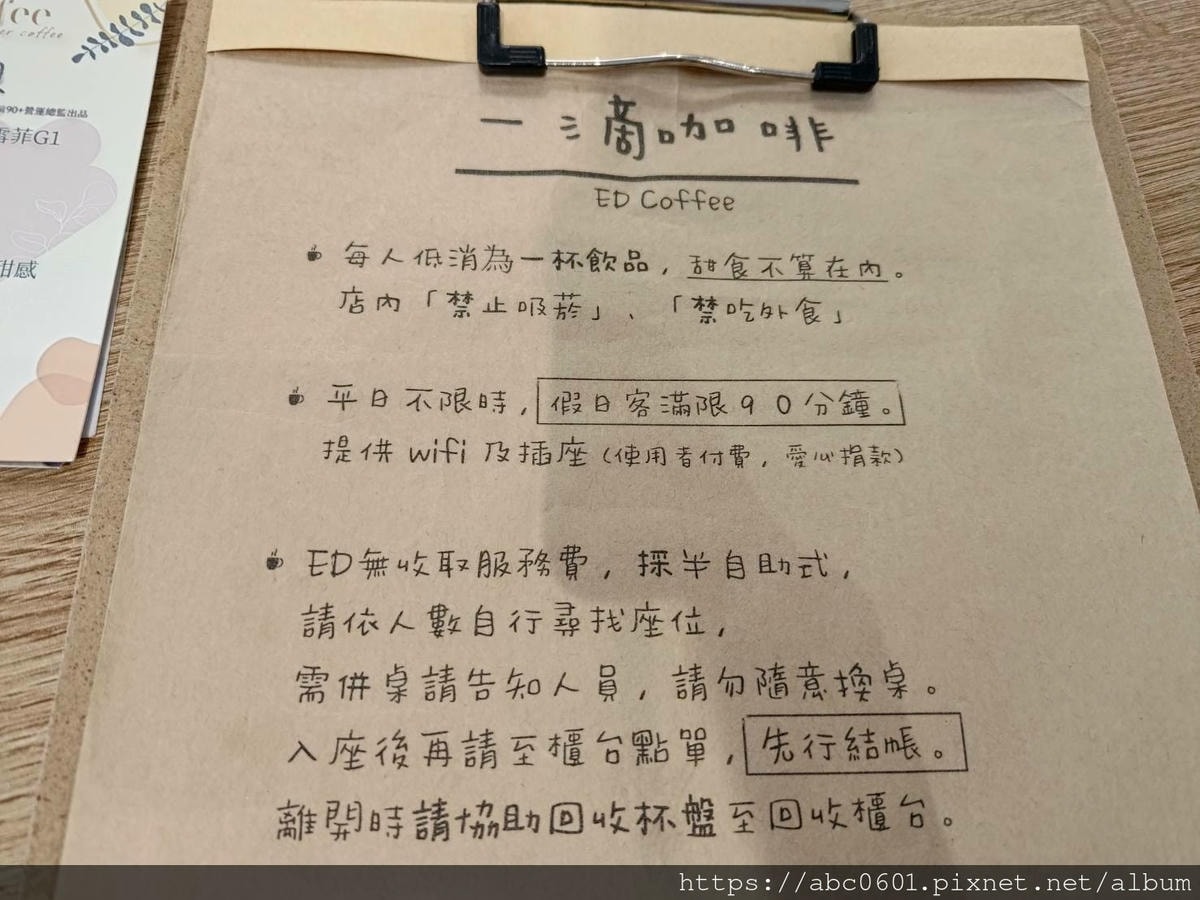 一滴咖啡
ED Coffee
每人低消為一杯飲品，甜食不算在內。
店內「禁止吸菸」、「禁吃外食」
平日不限時，假日客滿限90分鐘。
提供 wifi 及插座（使用者付費，愛心捐款）
ED無收取服務費，採半自助式，
請依人數自行尋找座位，
需併桌請告知人員，請勿隨意換桌。
入座後再請至櫃台點單，先行結帳。
離開時請協助回收杯盤至回收櫃台。
90+營運總監出品
菲G1
甜感
https://abc0601.pixnet.net/album